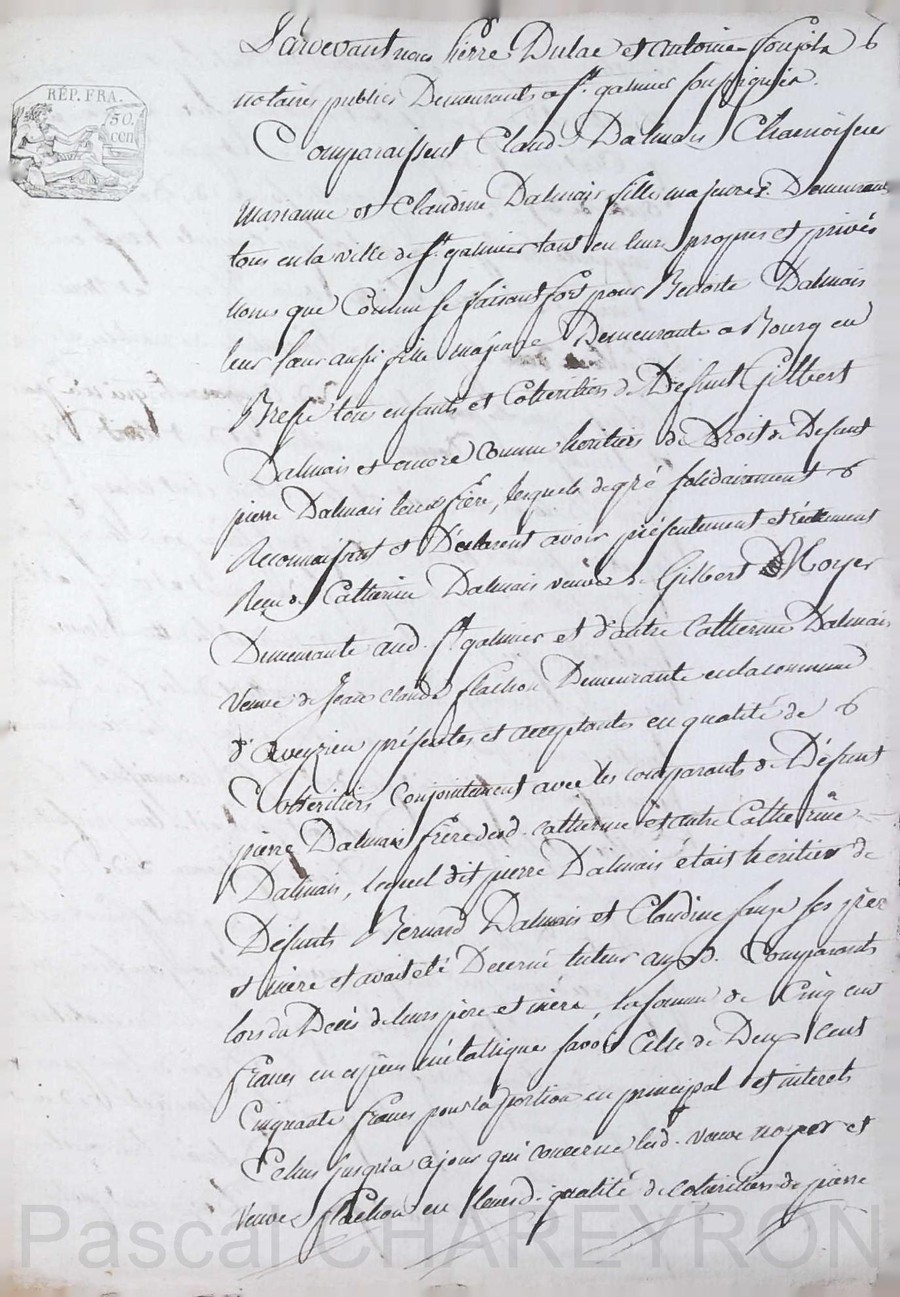 REP. FRA.
50.
cen
Pardevant nous Pierre Dulac et antoine
notaires publics Demeurants a St. galmier soussignés.
Comparaissent Claude Dalmais Chamoiseur
marianne et Claudine Dalmais filles majeures Demeurant
tous en la ville de St. galmier tant en leurs propres et privés
noms que Comme se faisant fort pour Benoite Dalmais
leur sœur aussi fille majeure Demeurante a Bourg en
Bresse tous enfants et Coheritiers de Defunt Gilbert
Dalmais et encore comme heritiers de Droit de Defunt
pierre Dalmais leur frère, lesquels de gré solidairement
Reconnaissent et Declarent avoir présentement et réellement
Reçu de Catherine Dalmais veuve de Gilbert Noyer
Demeurante aud. St. galmier et d'autre Catherine Dalmais
Veuve de Jean claude flachon Demeurante en la commune
d'aveyzieu présentes et acceptantes en qualité de
Cohéritiers Conjointement avec les comparants de Défunt
pierre Dalmais frère desd. catherine et autre Catherine
Dalmais, lequel dit pierre Dalmais était heritier de
Défunts Bernard Dalmais et Claudine ses père
et mère et avait eté Decerné tuteur auxd. Comparants
lors du Décès de leurs père et mère, la somme de Cinq cent
francs en espèces métalliques savoir Celle de Deux Cent
Cinquante francs pour la portion en principal et interets
Echus jusqu'a ce jour qui concerne lesd. veuve noyer et
veuve flachon en leursd. qualité de coheritiers de pierre
Pascal CHAREYRON